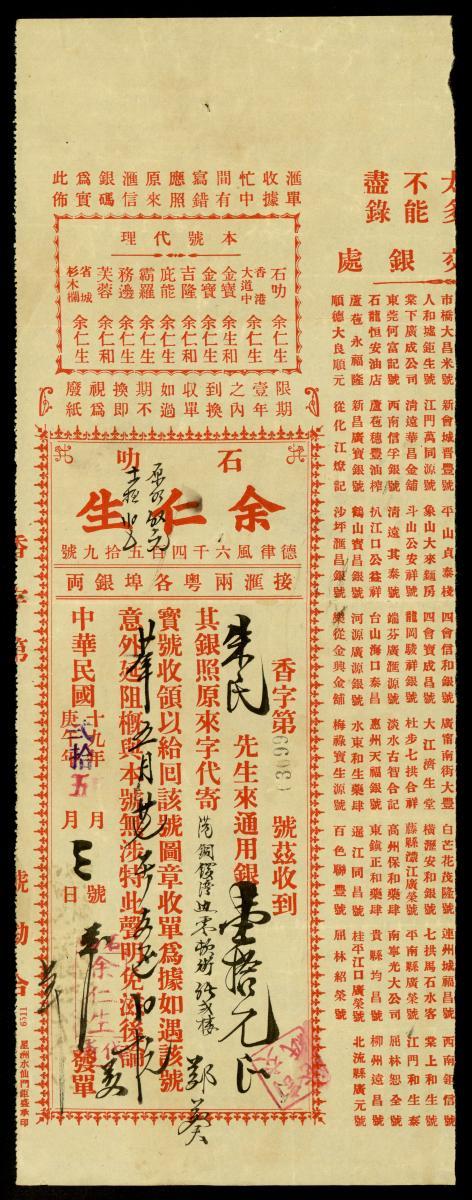 太多
不能
盡錄
交銀處
市橋大昌米號 新會城晋豐號 平山貞泰棧 四會信和銀號 廣甯南街大豐 白芒花茂隆號 連州城福昌號 西南鉅信號
人和墟鉅生號 江門萬同源號 象山大來麵房 四會寶成昌號 大江濟生堂 橫瀝安和銀號 七拱馬石水客 棠上和生號
棠下廣成公司 清遠華昌金舖 斗山公安祥號 龍岡駿祥銀號 杜步七拱合祥 藤縣濃江廣榮號 平南縣廣榮號 江門和生泰
東莞何富記號 西南信孚銀號 清遠其泰號 端芬廣滙源號 淡水古智合記 高州保和藥肆 南寧光大公司 屈林恕全號
石龍恒安油店 蘆苞穗豐油榨 扒江口公益祥 台山海口泰昌 惠州天福銀號 東鎮正和藥肆 貴縣均昌號 柳州遠昌號
蘆苞永福隆 新昌廣寶銀號 鶴山寶昌銀號 河源廣源銀號 水東和生藥肆 暹江同昌號 桂平江口廣榮號 北流縣廣元號
順德大良順元 從化江燎記 沙坪滙昌銀號 樂從金興金舖 梅祿寶生源號 百色聯豐號 屈林紹榮號
滙單收據
忙中間有
寫錯應照
原來滙信
銀碼爲實
此佈
本號代理
石叻 余仁生
香港大道中 余仁生
金寶 余生和
金寶 余仁和
吉隆 余仁生
庇能 余仁生
霸羅 余仁生
務邊 余仁生
芙蓉 余仁和
省城杉木欄 余仁生
限期壹年
之內到換
收單如過
期不換即
視爲廢紙
石叻
余仁生
德律風六千四百五拾九號
接滙兩粵各埠銀両
香字第 號茲收到
朱氏 先生來通用銀壹拾元正
其銀照原來字代寄
鄭葵
寶號收領以給回該號圖章收單爲據如遇該號
意外延阻槪與本號無涉特此聲明免滋後論
中華民國十九年庚午年 月 號
弍拾五 月 日 發單
余仁生
香字第
號勘合
1159 星洲水仙門鉅盛承印